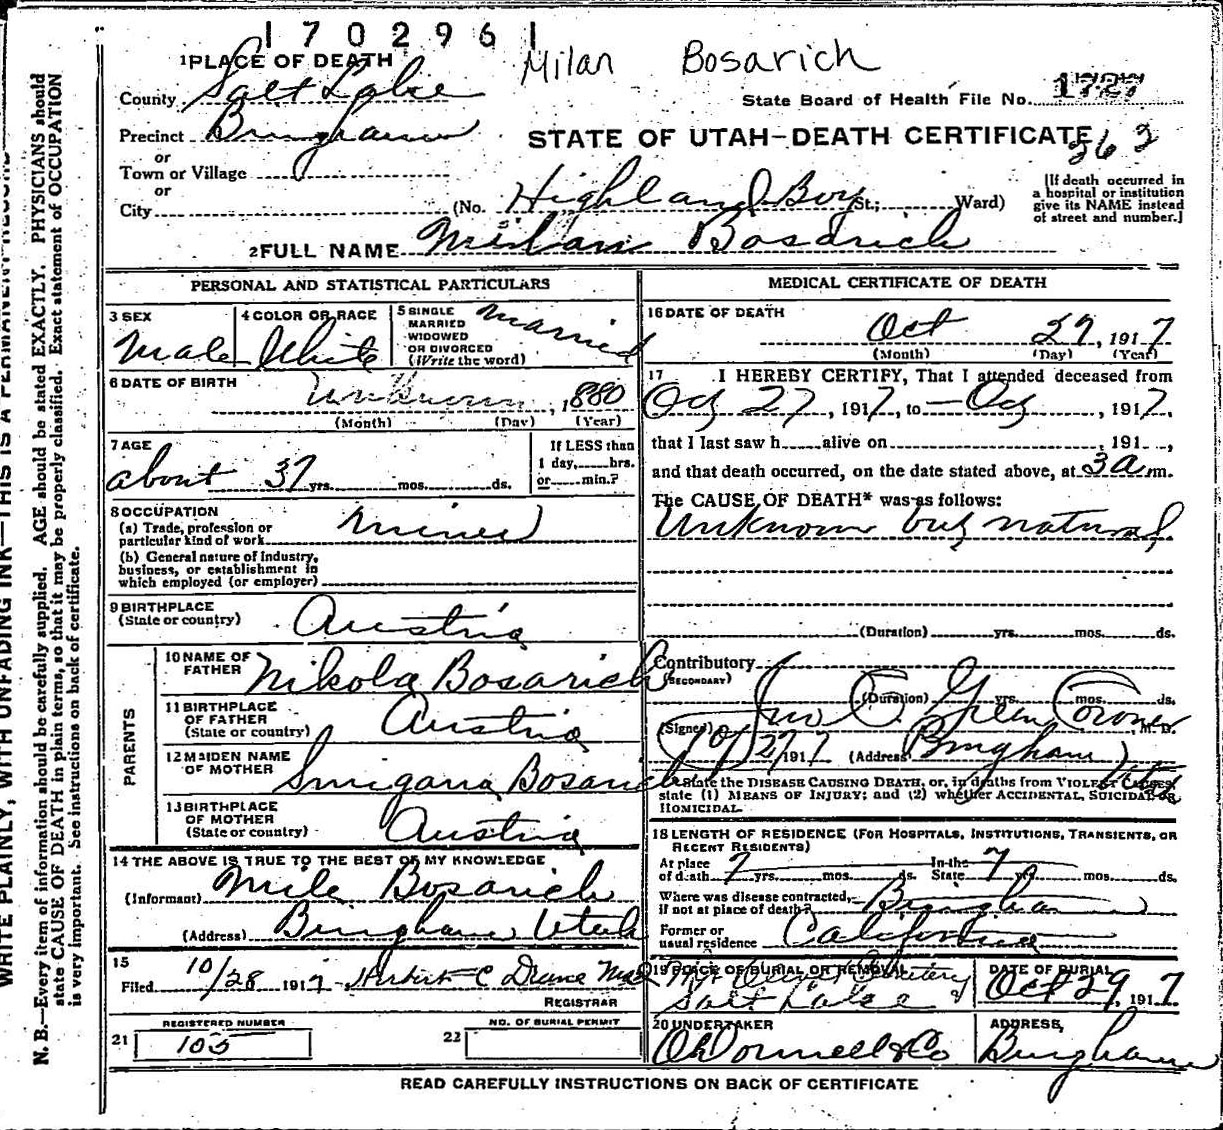 1702961
Milan Bosarich
1 PLACE OF DEATH
County Salt Lake
State Board of Health File No. 1727
Precinct Bingham
STATE OF UTAH—DEATH CERTIFICATE
262
or
Town or Village
or
City (No. Highland Boy St.; Ward)
[If death occurred in a hospital or institution give its NAME instead of street and number.]
2 FULL NAME Milan Bosarich
PERSONAL AND STATISTICAL PARTICULARS
3 SEX Male
4 COLOR OR RACE White
5 SINGLE MARRIED WIDOWED OR DIVORCED (Write the word) Married
6 DATE OF BIRTH Unknown, 1880
(Month) (Day) (Year)
7 AGE about 37 yrs. mos. ds.
If LESS than 1 day, hrs. or min.?
8 OCCUPATION
(a) Trade, profession or particular kind of work Miner
(b) General nature of industry, business, or establishment in which employed (or employer)
9 BIRTHPLACE (State or country) Austria
PARENTS
10 NAME OF FATHER Nikola Bosarich
11 BIRTHPLACE OF FATHER (State or country) Austria
12 MAIDEN NAME OF MOTHER Bosarich
13 BIRTHPLACE OF MOTHER (State or country) Austria
14 THE ABOVE IS TRUE TO THE BEST OF MY KNOWLEDGE
(Informant) Mile Bosarich
(Address) Bingham Utah
15 Filed 10/28 1917 C
REGISTRAR
REGISTERED NUMBER
21 105
NO. OF BURIAL PERMIT
22
MEDICAL CERTIFICATE OF DEATH
16 DATE OF DEATH Oct 27, 1917
(Month) (Day) (Year)
17 I HEREBY CERTIFY, That I attended deceased from
Oct 27, 1917, to — Oct, 1917,
that I last saw h alive on , 191 ,
and that death occurred, on the date stated above, at 3 a m.
The CAUSE OF DEATH* was as follows:
Unknown but natural
(Duration) yrs. mos. ds.
Contributory
(SECONDARY)
(Duration) yrs. mos. ds.
(Signed) Jno E. Green Coroner, M. D.
10/27 1917 (Address) Bingham Utah
*State the DISEASE CAUSING DEATH, or, in deaths from VIOLENT CAUSES, state (1) MEANS OF INJURY; and (2) whether ACCIDENTAL, SUICIDAL OR HOMICIDAL.
18 LENGTH OF RESIDENCE (FOR HOSPITALS, INSTITUTIONS, TRANSIENTS, OR RECENT RESIDENTS)
At place of death 7 yrs. mos. ds. In the State 7 yrs. mos. ds.
Where was disease contracted, if not at place of death? Bingham
Former or usual residence California
19 PLACE OF BURIAL OR REMOVAL Mt Olivet Cemetery Salt Lake
DATE OF BURIAL Oct 29, 1917
20 UNDERTAKER O'Donnell & Co
ADDRESS, Bingham
READ CAREFULLY INSTRUCTIONS ON BACK OF CERTIFICATE
WRITE PLAINLY, WITH UNFADING INK—THIS IS A PERMANENT RECORD
N. B.—Every item of information should be carefully supplied. AGE should be stated EXACTLY. PHYSICIANS should
state CAUSE OF DEATH in plain terms, so that it may be properly classified. Exact statement of OCCUPATION
is very important. See instructions on back of certificate.